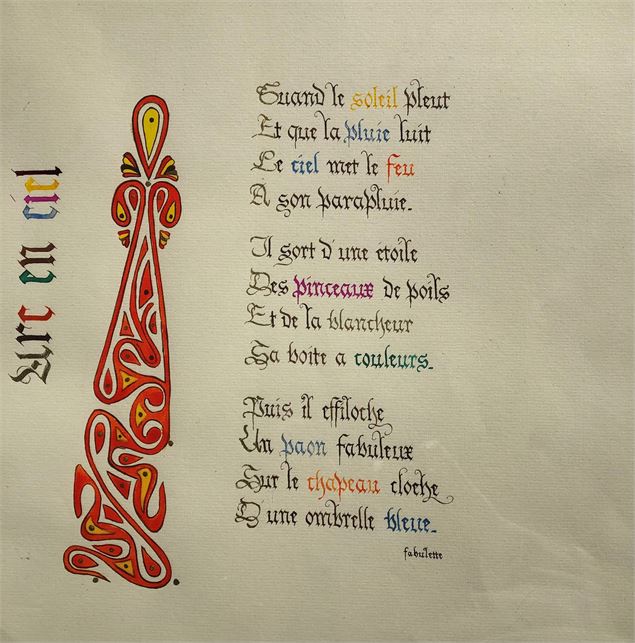 Arc en ciel
Quand le soleil pleut
Et que la pluie luit
Le ciel met le feu
A son parapluie.
Il sort d'une etoile
Des pinceaux de poils
Et de la blancheur
Sa boite a couleurs.
Puis il effiloche
Un paon fabuleux
Sur le chapeau cloche
D'une ombrelle bleue.
fabulette